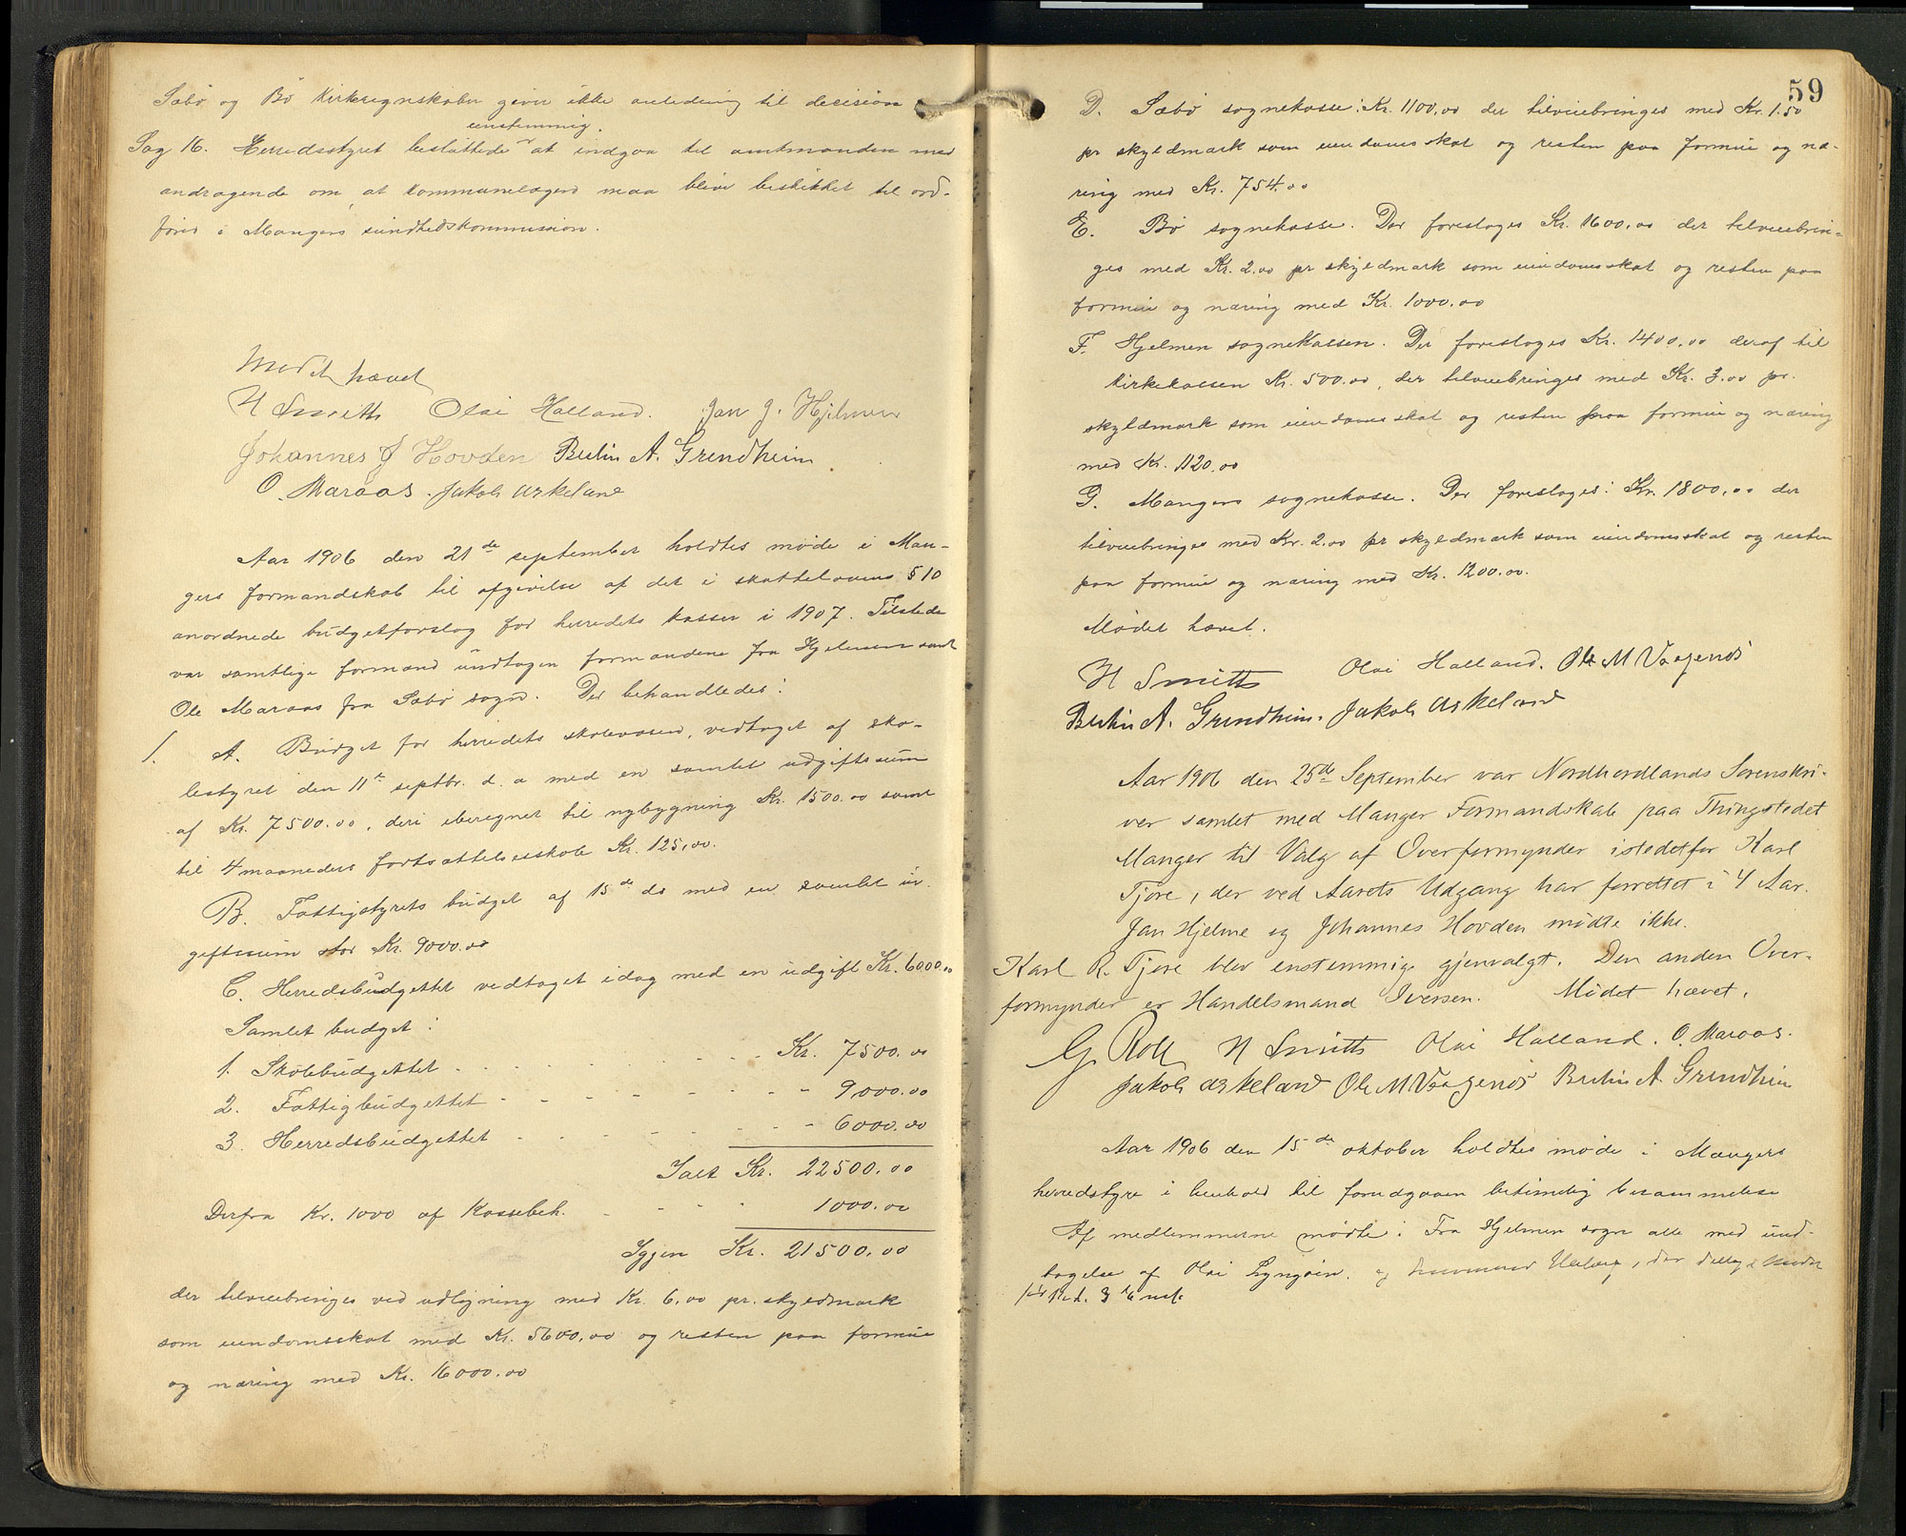 Sæbø og Bø kirkeregnskaber giver ikke anledning til decision
enstemmig.
Sag 16. Herredsstyret besluttede at indgaa til amtmanden med
andragende om, at kommunelægen maa blive beskikket til ord-
fører i Mangers sundhedskommission.
Mødet hævet
H Smitth Olai Halland. Jan J. Hjelmen
Johannes J Hovden Berlin A. Grendheim.
O. Maraas. Jakob Askeland
Aar 1906 den 21de september holdtes møde i Man-
gers formandskab til afgivelse af det i skattelovens § 10
anordnede budgetforslag for herredets kasser i 1907. Tilstede
var samtlige formænd undtagen formændene fra Hjelmen samt
Ole Maraas fra Sæbø sogn. Der behandledes:
1. A. Budget for herredets skolevæsen, vedtaget af sko-
lestyret den 11te septbr. d. a med en samlet udgiftssum
af Kr. 7500.00, deri iberegnet til nybygning Kr. 1500.00 samt
til 4 maaneders fortsættelsesskole Kr. 125,00.
B. Fattigstyrets budget af 15de ds med en samlet ud-
giftssum stor Kr. 9000.00
C. Herredsbudgettet vedtaget idag med en udgift Kr. 6000.00
Samlet budget:
1. Skolebudgettet - - - - Kr. 7500.00
2. Fattigbudgettet - - - - - 9000.00
3. Herredsbudgettet - - - - - 6000.00
Ialt Kr. 22500.00
Derfra Kr. 1000 af Kassebeh. - - - 1000.00
Igjen Kr. 21500.00
der tilveiebringes ved udligning med Kr. 6,00 pr. skyldmark
som eiendomsskat med Kr. 5600,00 og resten paa formue
og næring med Kr. 16000.00
59
D. Sæbø sognekasse: Kr. 1100,00 der tilveiebringes med Kr. 1.50
pr skyldmark som eiendomsskat og resten paa formue og næ-
ring med Kr. 754.00
E. Bø sognekasse. Der foreslages Kr. 1600,00 der tilveiebrin-
ges med Kr. 2.00 pr skyldmark som eiendomsskat og resten paa
formue og næring med Kr. 1000.00
F. Hjelmen sognekassen. Der foreslages Kr. 1400,00 deraf til
kirkekassen Kr. 500.00, der tilveiebringes med Kr. 3.00 pr.
skyldmark som eiendomsskat og resten paa formue og næring
med Kr. 1120.00
G. Mangers sognekasse. Der foreslages: Kr. 1800,00 der
tilveiebringes med Kr. 2.00 pr skyldmark som eiendomsskat og resten
paa formue og næring med Kr. 1200.00.
Mødet hævet.
H Smitth Olai Halland. Ole M Vaagenes
Berlin A. Grendheim. Jakob Askeland
Aar 1906 den 25de September var Nordhordlands Sorenskri-
ver samlet med Manger Formandskab paa Thingstedet
Manger til Valg af Overformynder istedetfor Karl
Tjore, der ved Aarets Udgang har forrettet i 4 Aar.
Jan Hjelme og Johannes Hovden mødte ikke.
Karl R. Tjore blev enstemmig gjenvalgt. Den anden Over-
formynder er Handelsmand Iversen. Mødet hævet.
G. Roll H Smitth Olai Halland. O. Maraas.
Jakob Askeland Ole M Vaagenes Berlin A Grendheim
Aar 1906 den 15de oktober holdtes møde i Mangers
herredstyre i henhold til forudgaaen betimelig besammelse
Af medlemmerne mødte: Fra Hjelmen sogn alle med und-
tagelse af Olai Lyngøen. og